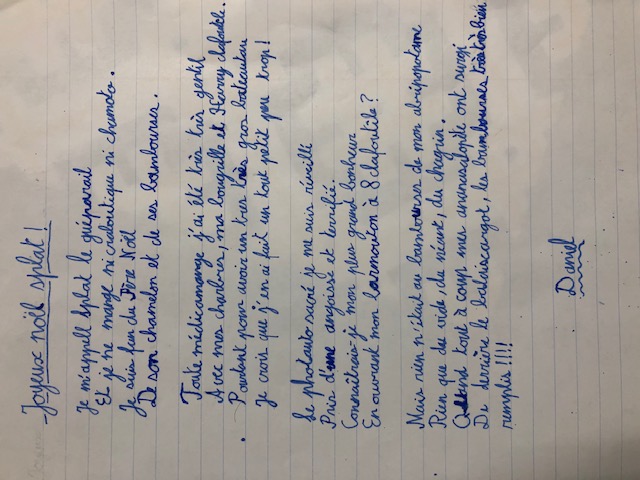 Joyeux noël splat!
Je m'appell splat le guéparail
Et je ne mange ni craboutique ni chamoto.
Je suis feu du Père Noël
De son chameon et de ses bambourses.
Toute médicamange j'ai été très très gentil
Avec mes charbres, ma bougille et Harry clafortile.
Pourtant pour avoir un tres très gros bateautau
Je crois que j'en ai fait un tout petit peu trop!
Le photauto sacré je me suis réveillé
Pris d'une angoisse et terrifié.
Connaîtrais-je mon plus grand bonheur
En ouvrant mon larmouton à 8 clafortile?
Mais rien n'était au bambourse de mon abripopotame
Rien que du vide, du nécunt, du chagrin.
Attend tout à coup mes ont surgi
De derrière le balaiscargot, les bambourses très très bien
remplis!!!!
Daniel